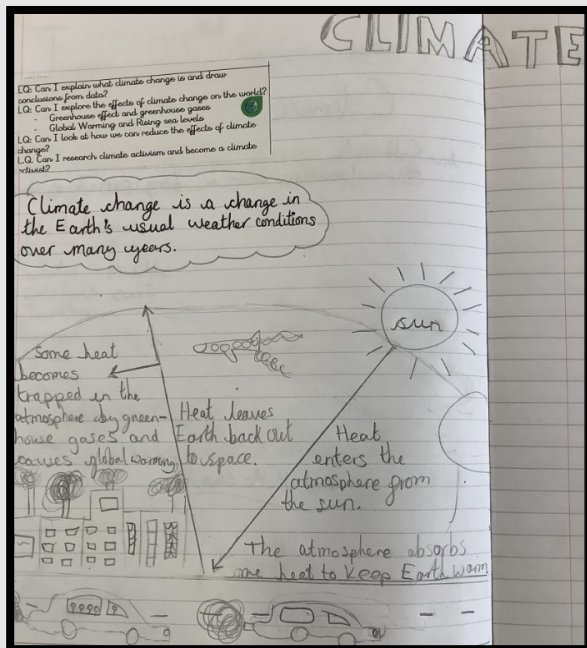 CLIMATE
LQ: Can I explain what climate change is and draw
conclusions from data?
LQ: Can I explore the effects of climate change on the world?
- Greenhouse effect and greenhouse gases
- Global Warming and Rising sea levels
LQ: Can I look at how we can reduce the effects of climate
change?
LQ. Can I research climate activism and become a climate
activist?
Climate change is a change in
the Earth's usual weather conditions
over many years.
sun
Some heat
becomes
trapped in the
atmosphere by green-
house gases and
causes global warming
Heat leaves
Earth back out
to space.
Heat
enters the
atmosphere from
the sun.
The atmosphere absorbs
me heat to keep Earth warm